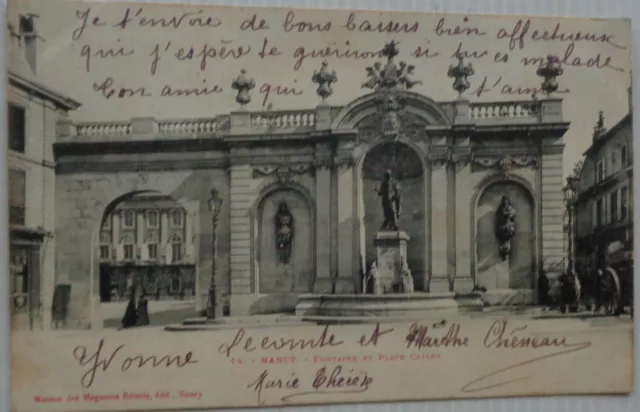 Je t'envoie de bons baisers bien affectueux
qui j'espère te guériront si tu es malade
Ton amie qui t'aime
Yvonne Lecomte et Marthe Chéneau
14. - NANCY. - FONTAINE ET PLACE CALLOT
Marie Thérèse
Maison des Magasins Réunis, édit., Nancy